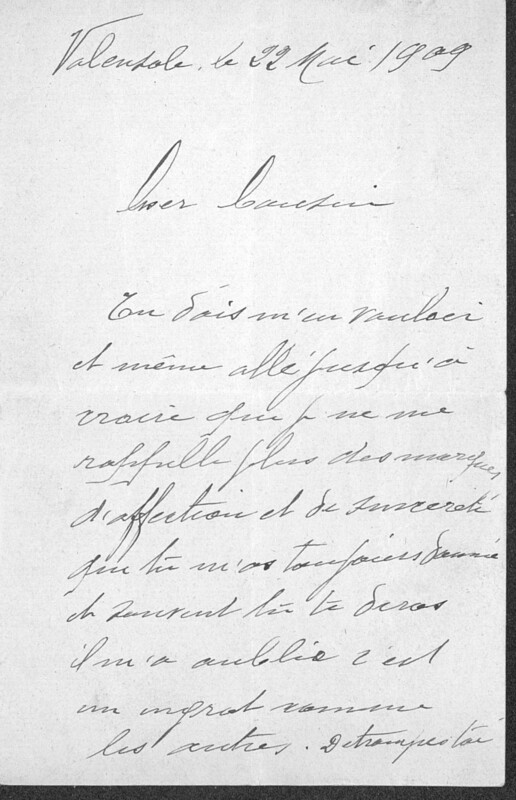 Valensole, le 22 Mai 1909
Cher Cousin
Tu dois m'en vouloir
et même allé jusqu'à
croire que je ne me
rappelle plus des marques
d'affection et de sincérité
que tu m'as toujours donnée
et souvent tu te diras
il m'a oublié c'est
un ingrat comme
les autres. Détrompes toi